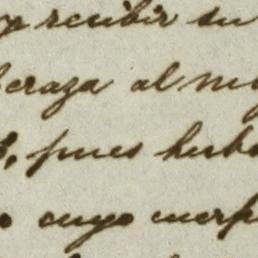 y recibir su
eraza al me
, pues hub
o cuyo cuerp